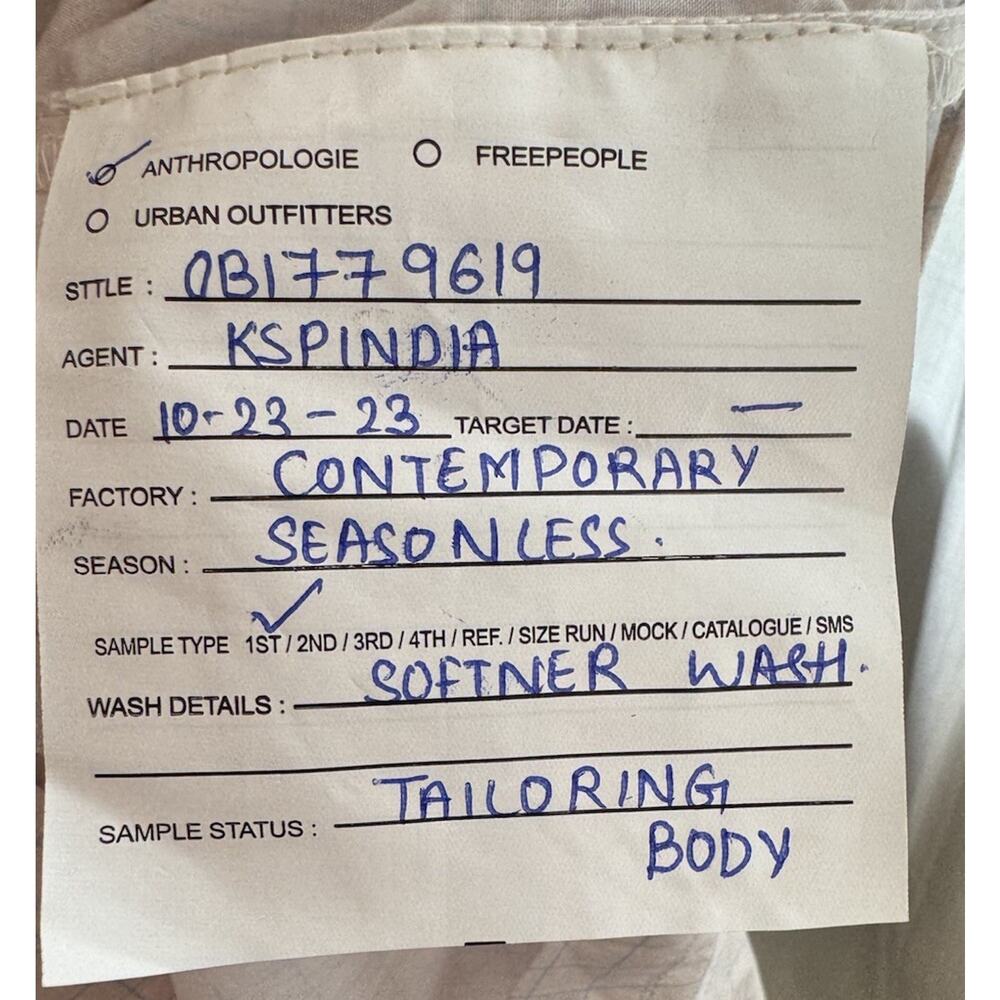 ANTHROPOLOGIE FREEPEOPLE
URBAN OUTFITTERS
STTLE : OB1779619
AGENT : KSPINDIA
DATE 10-23-23 TARGET DATE : —
FACTORY : CONTEMPORARY
SEASON : SEASONLESS.
SAMPLE TYPE 1ST / 2ND / 3RD / 4TH / REF. / SIZE RUN / MOCK / CATALOGUE / SMS
WASH DETAILS : SOFTNER WASH.
SAMPLE STATUS : TAILORING
BODY